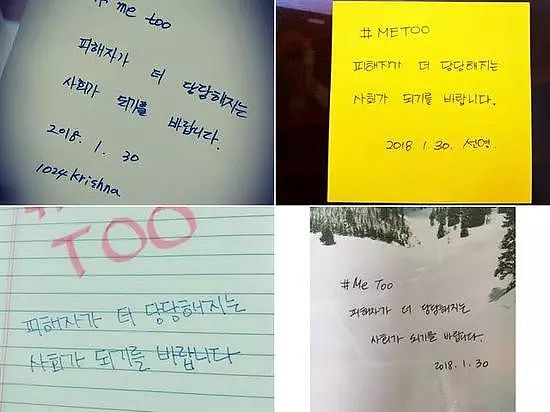 # me too
피해자가 더 당당해지는
사회가 되기를 바랍니다.
2018. 1. 30
1024 Krishna
#METOO
피해자가 더 당당해지는
사회가 되기를 바랍니다.
2018. 1. 30. 선영.
TOO
피해자가 더 당당해지는
사회가 되기를 바랍니다
#Me Too
피해자가 더 당당해지는
사회가 되기를 바랍니다.
2018. 1. 30